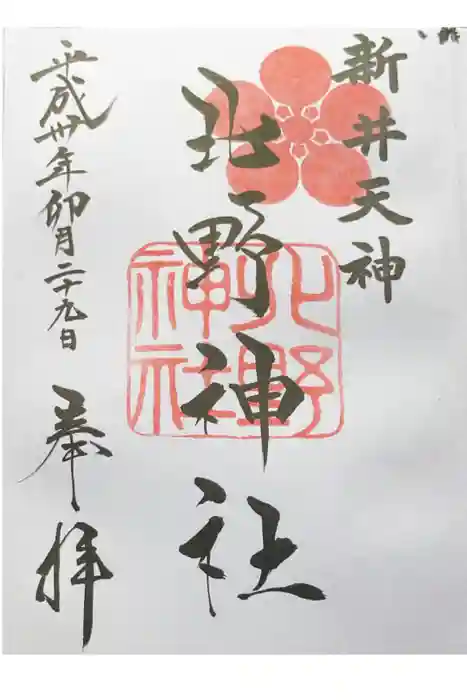 新井天神
北野神社
北野神社
平成卅年卯月二十九日
奉拝